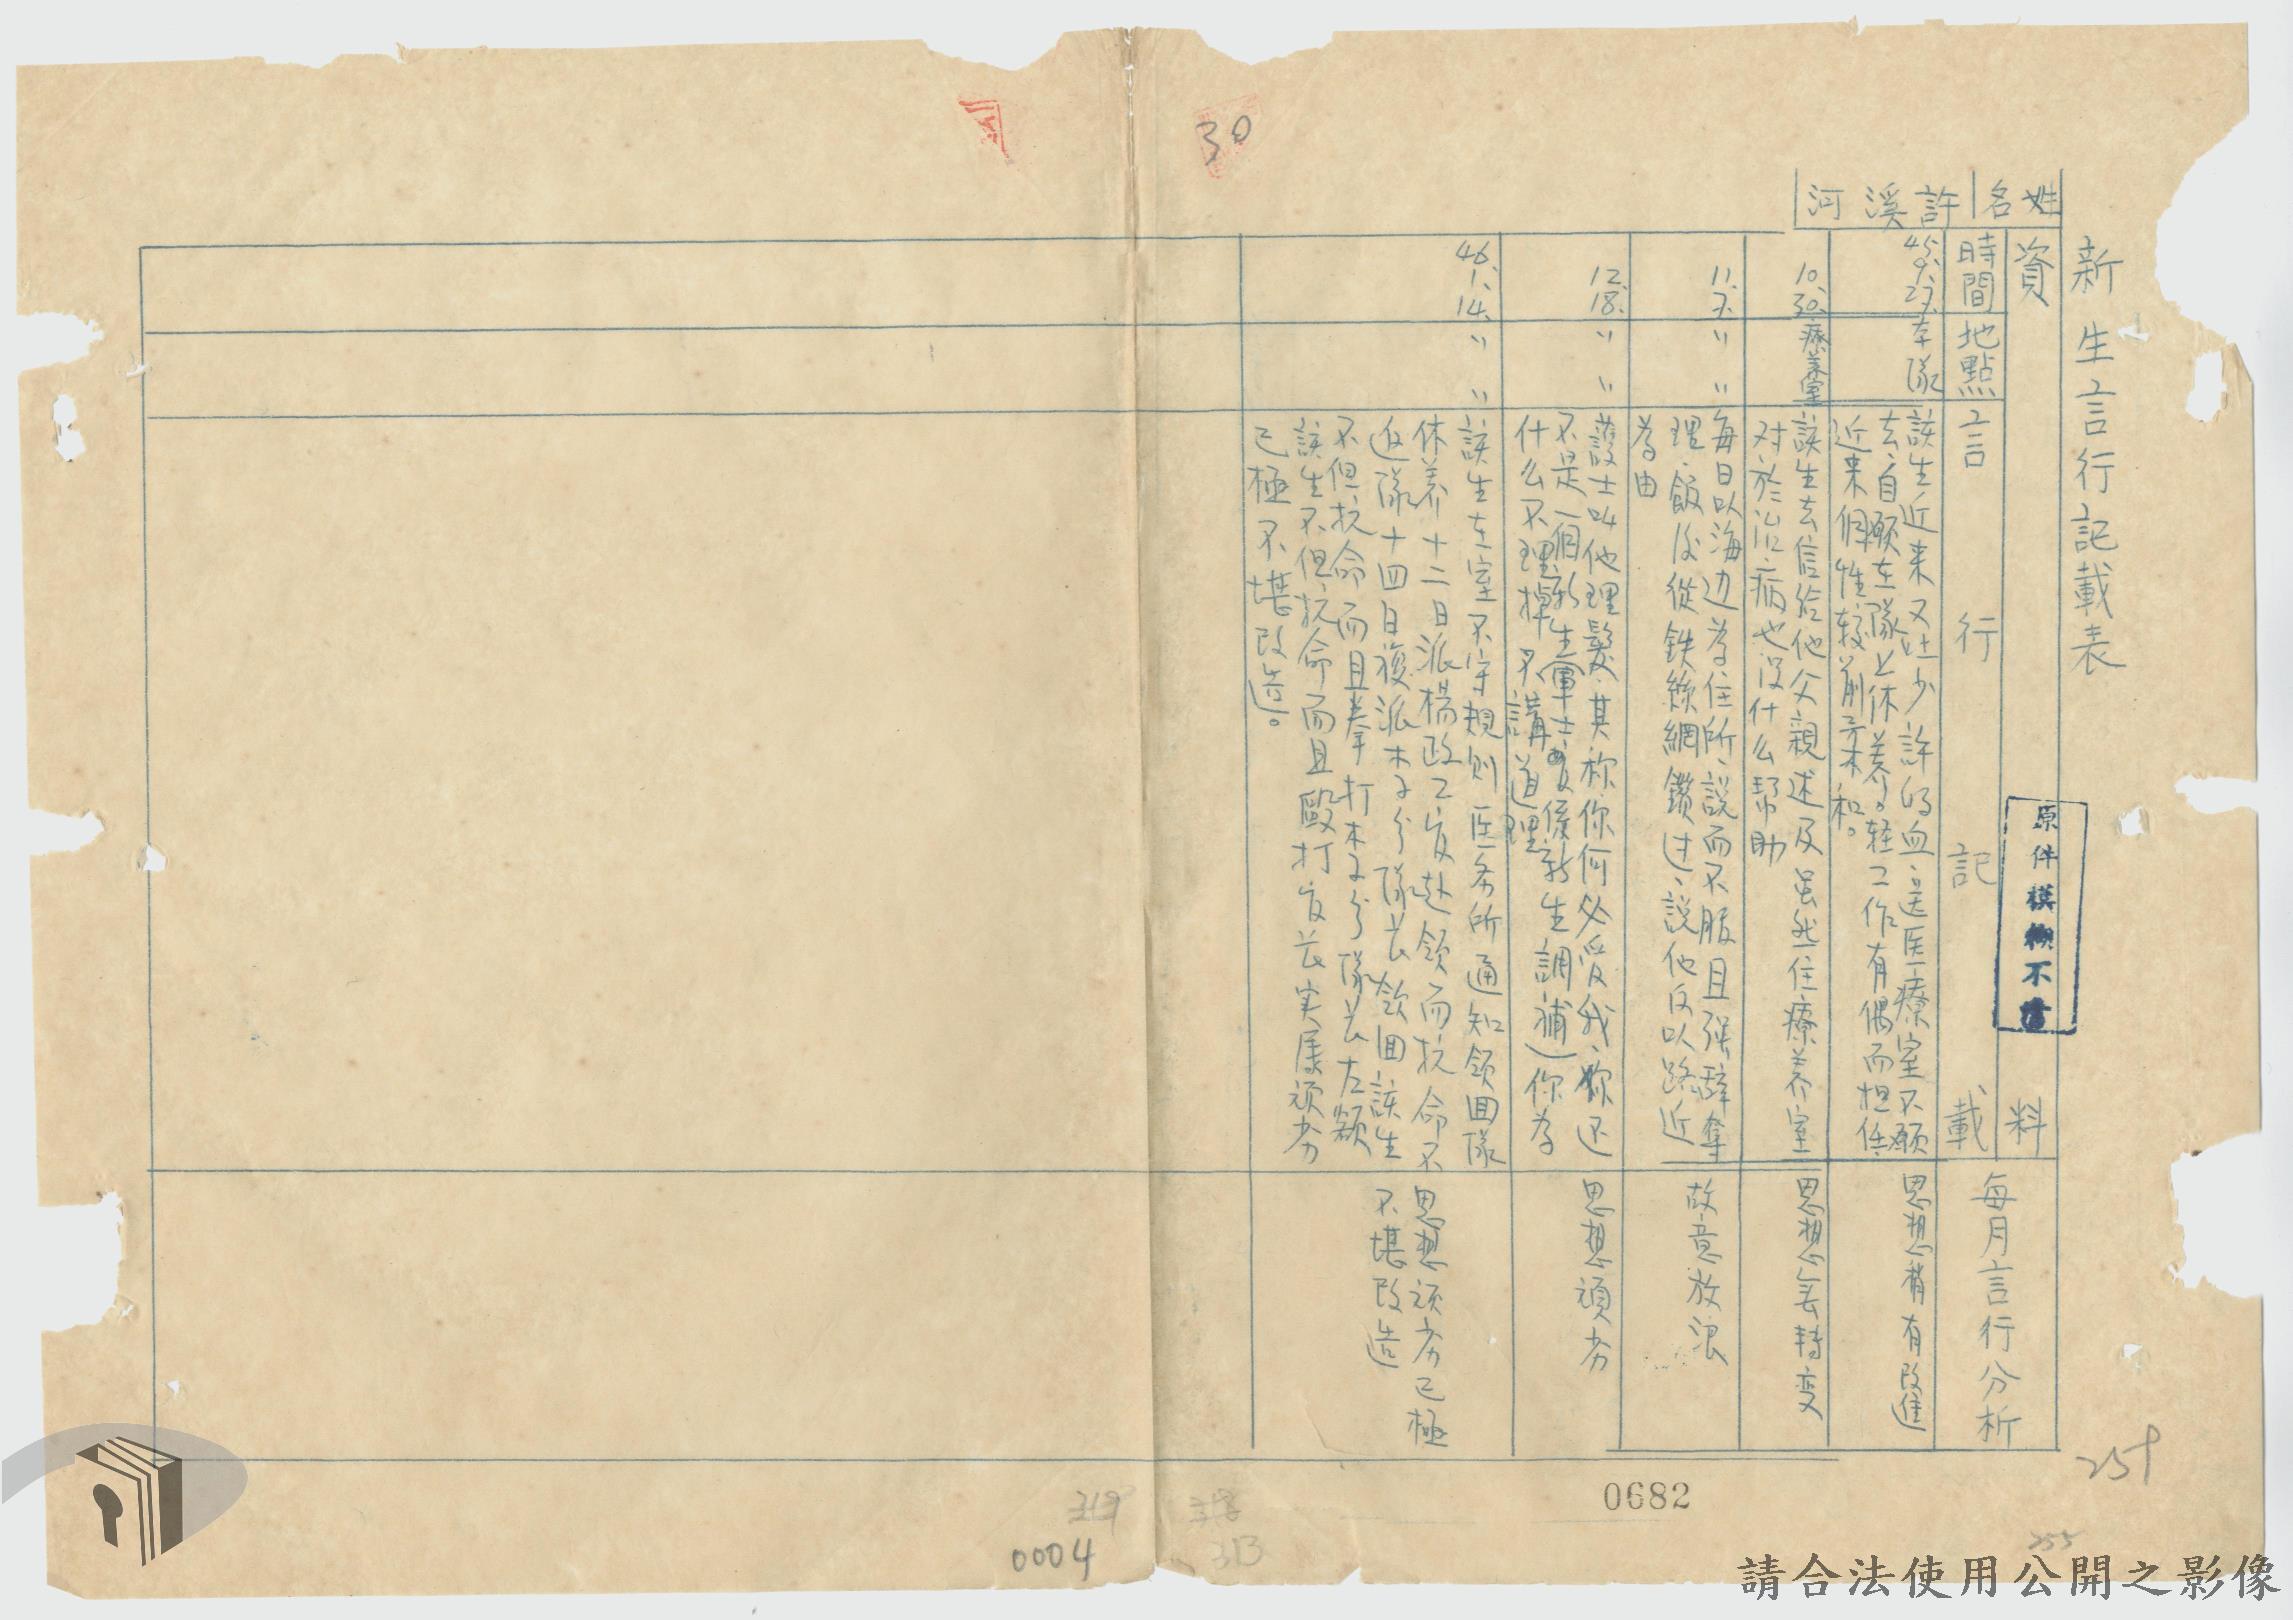 新生言行記載表
姓名
許溪河
資料
時間
地點
言行記載
每月言行分析
45、9、27、
本隊
該生近来又吐少許的血、送医療室不願
去、自願在隊上休养。轻工作有偶而担任、
近来個性較前柔和。
思想稍有改進
10、30、
療养室
該生去信给他父親述及虽然住療养室
对於治病也没什么帮助
思想無轉变
11、7、
〃〃
每日以海边為住所、説而不服且强辞奪
理、飯後從鉄絲網鑽过、説他反以路近
為由
故意放浪
12、18、
〃〃
護士叫他理髮、其称、你何必受我、你还
不是一個新生軍士
什么不理掉、又不講道理
思想頑劣
46、1、14、
〃〃
該生在室不守規则医务所通知領回隊
休养十二日派楊政工官赴領而抗命不
返隊十四日複派李分隊長領回該生
不但抗命而且拳打李分隊長左額
該生不但抗命而且毆打官長実属頑劣
已極不堪改造。
思想頑劣已極
不堪改造
原件模糊不清
30
0682
259
255
319
318
313
0004
請合法使用公開之影像